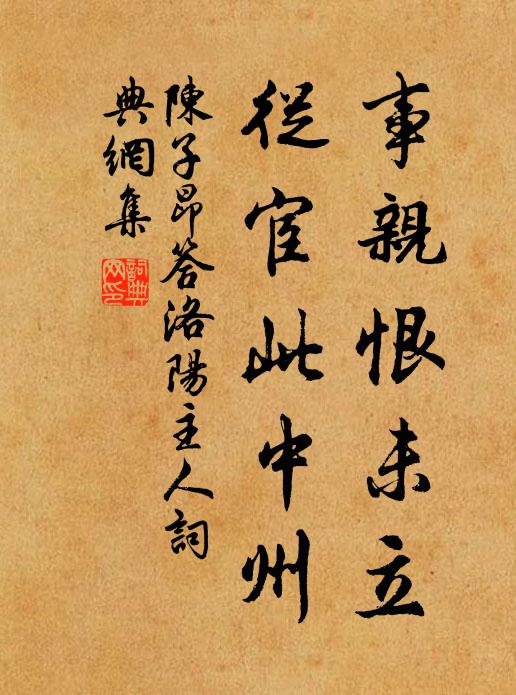 事親恨未立
從宦此中州
陳子昂答洛陽主人詞
典網集
詞典
网印